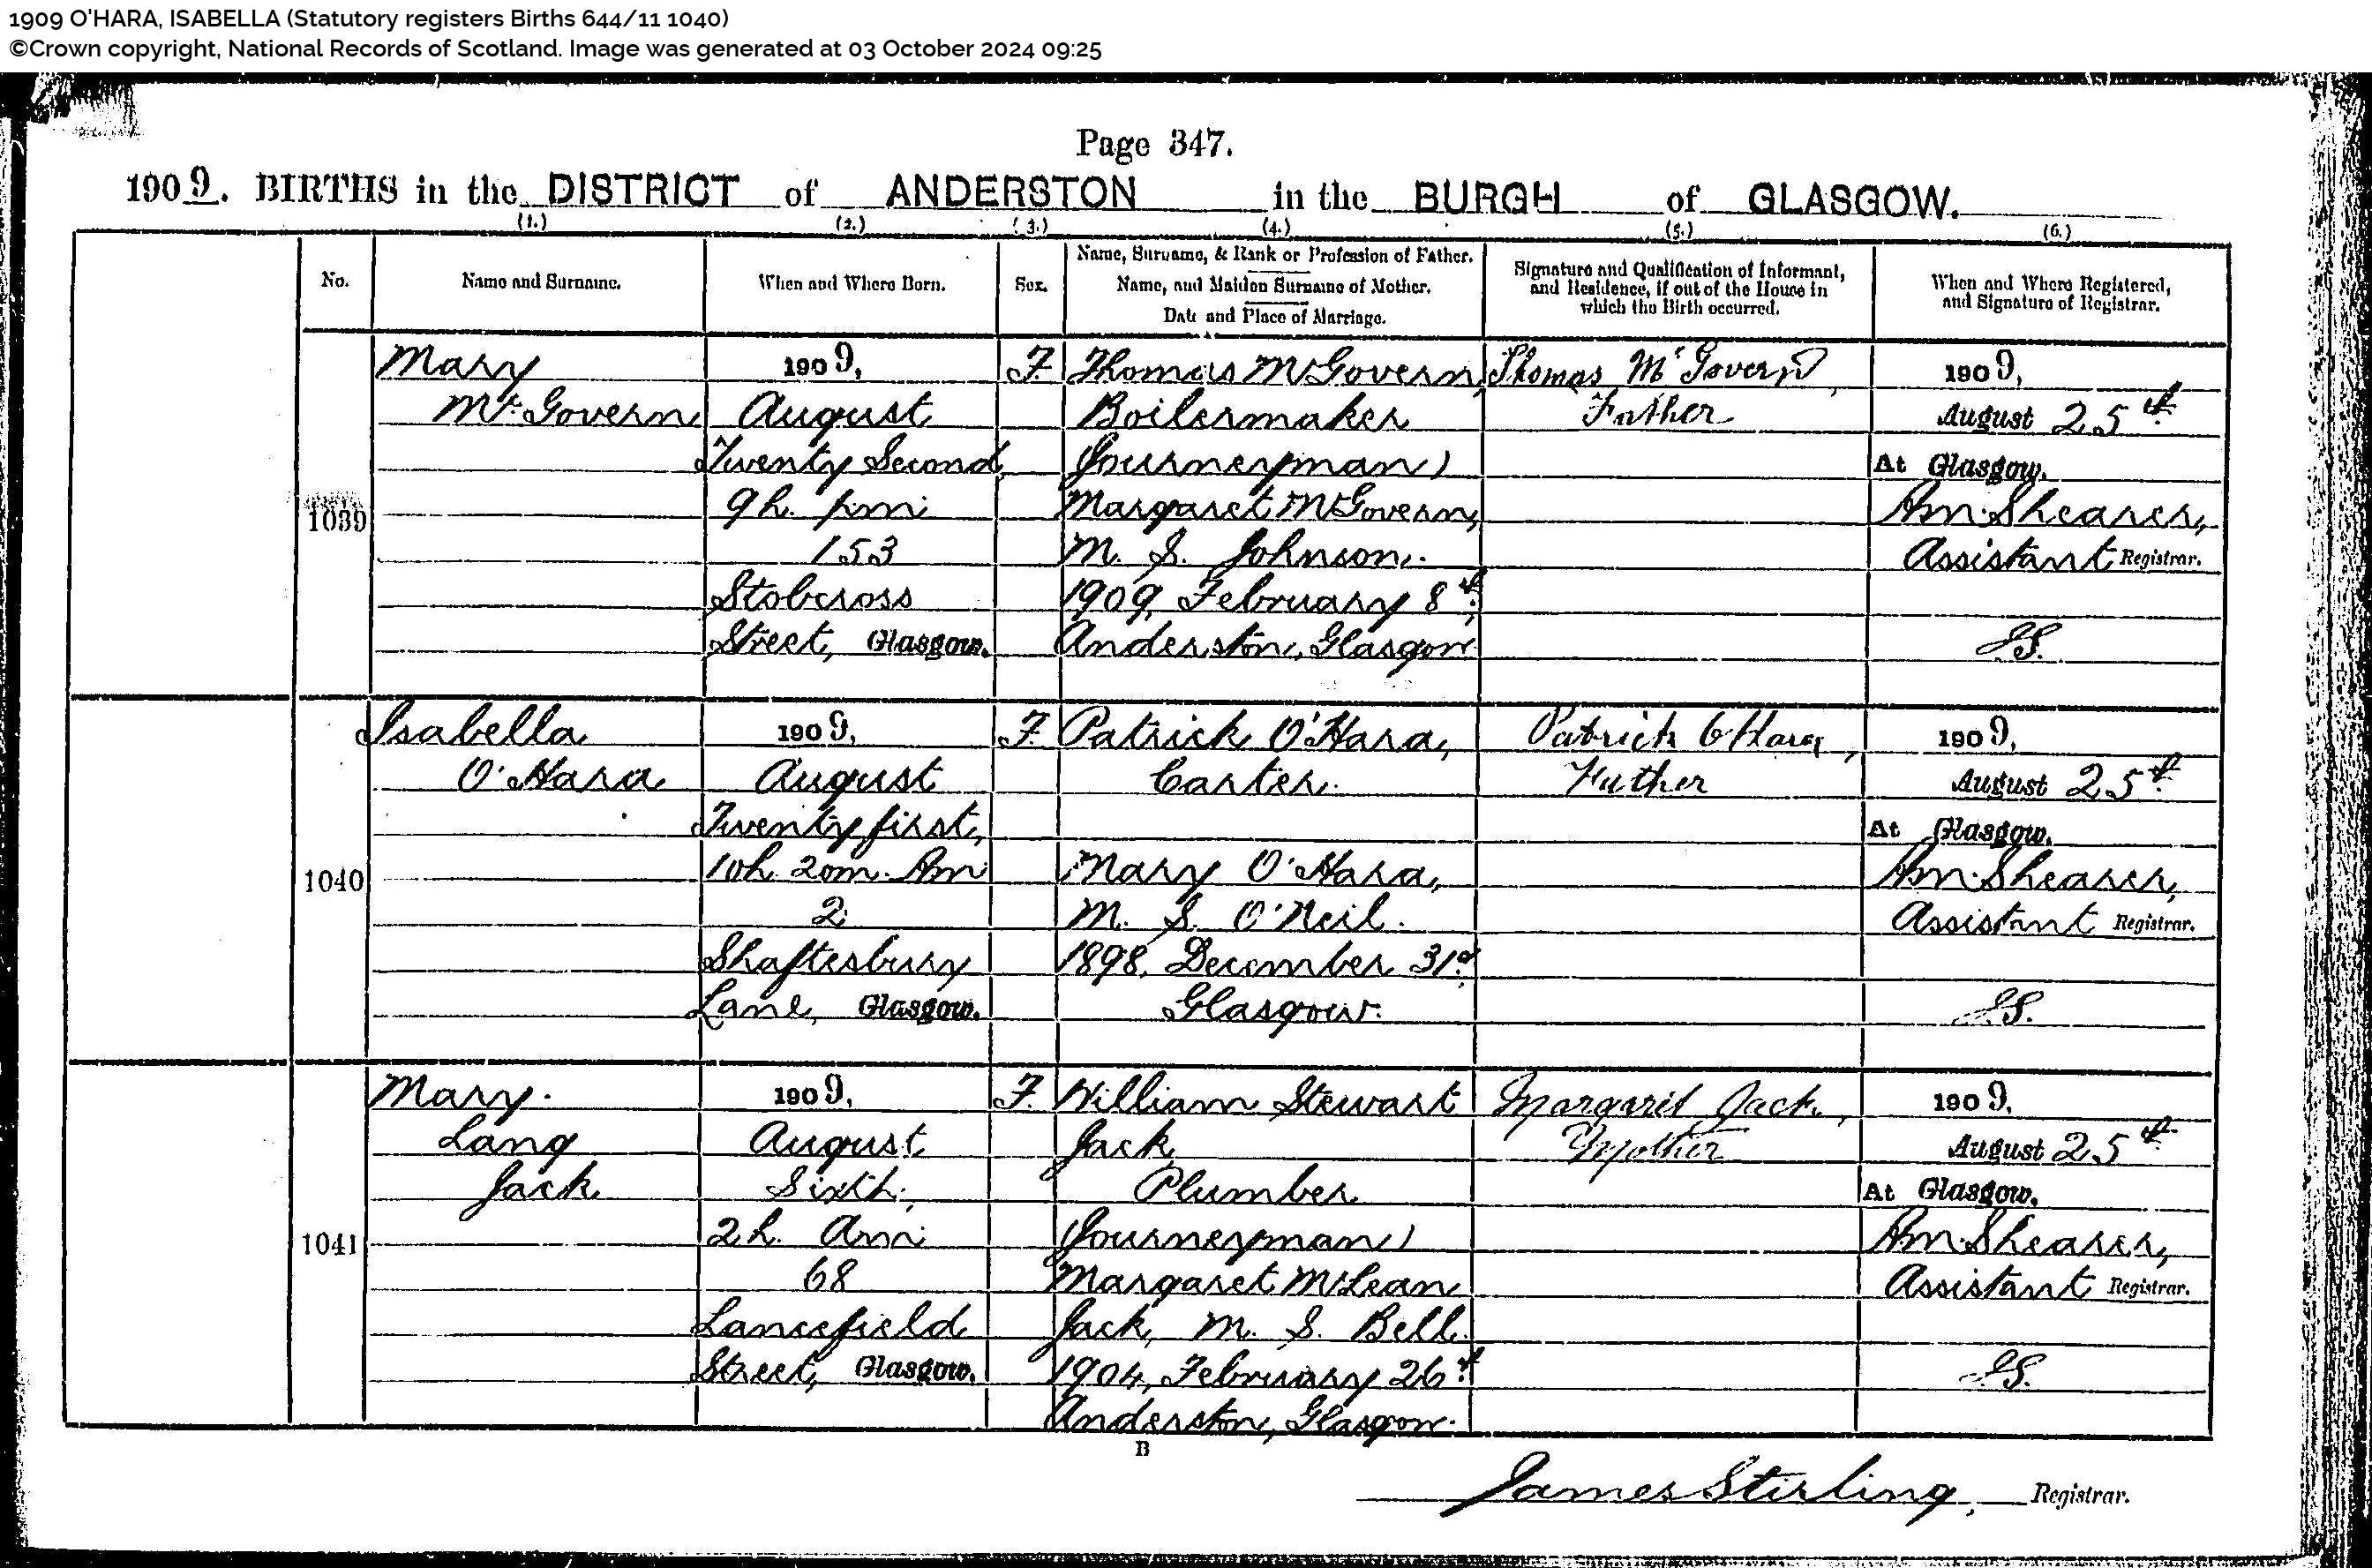 1909 O'HARA, ISABELLA (Statutory registers Births 644/11 1040)
©Crown copyright, National Records of Scotland. Image was generated at 03 October 2024 09:25
Page 347.
1909. BIRTHS in the DISTRICT of ANDERSTON in the BURGH of GLASGOW.
(1.) (2.) (3.) (4.) (5.) (6.)
No.
Name and Surname.
When and Where Born.
Sex.
Name, Surname, & Rank or Profession of Father.
Name, and Maiden Surname of Mother.
Date and Place of Marriage.
Signature and Qualification of Informant,
and Residence, if out of the House in
which the Birth occurred.
When and Where Registered,
and Signature of Registrar.
1039
Mary
McGovern
1909,
August
Twenty Second,
9h. pm
153
Stobcross
Street, Glasgow.
F.
Thomas McGovern,
Boilermaker
(Journeyman)
Margaret McGovern,
M. S. Johnson.
1909, February 8th,
Anderston, Glasgow
Thomas McGovern,
Father
1909,
August 25th
At Glasgow.
Wm. Shearer,
Assistant Registrar.
J.S.
1040
Isabella
O'Hara
1909,
August
Twenty first,
10h. 20m. Am
2
Shaftesbury
Lane, Glasgow.
F.
Patrick O'Hara,
Carter.
Mary O'Hara,
M. S. O'Neil.
1898, December 31st,
Glasgow.
Patrick O'Hara,
Father
1909,
August 25th
At Glasgow.
Wm. Shearer,
Assistant Registrar.
J.S.
1041
Mary
Lang
Jack
1909,
August
Sixth,
2h. Am
68
Lancefield
Street, Glasgow.
F.
William Stewart
Jack,
Plumber
(Journeyman)
Margaret McLean
Jack, M. S. Bell.
1904, February 26th
Anderston, Glasgow.
Margaret Jack,
Mother
1909,
August 25th
At Glasgow.
Wm. Shearer,
Assistant Registrar.
J.S.
B
James Stirling, Registrar.